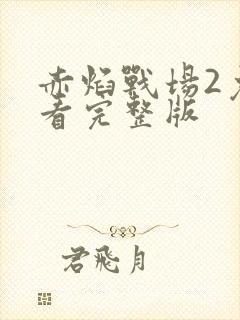 赤焰戰場2
看完整版
君飛月